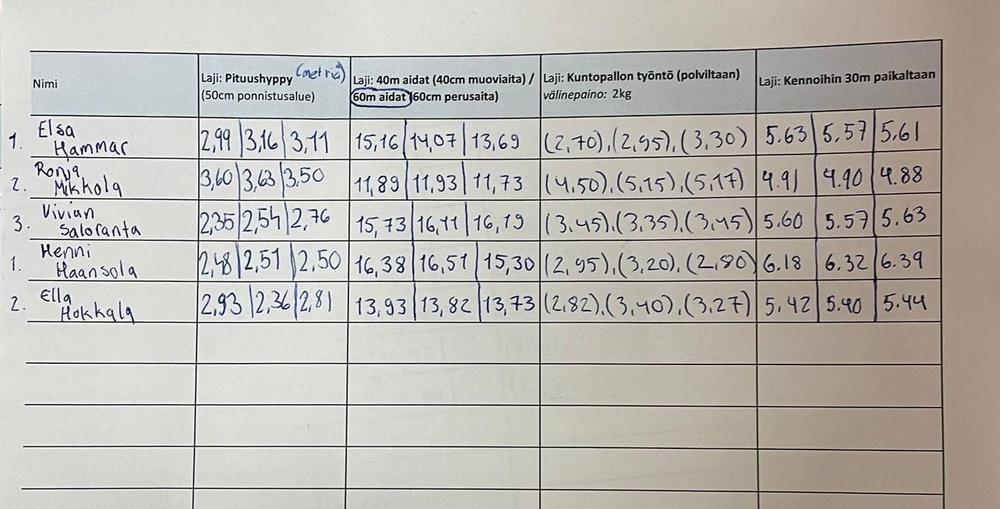 Nimi
Laji: Pituushyppy (metriä)
(50cm ponnistusalue)
Laji: 40m aidat (40cm muoviaita) /
60m aidat (60cm perusaita)
Laji: Kuntopallon työntö (polviltaan)
välinepaino: 2kg
Laji: Kennoihin 30m paikaltaan
1. Elsa
Hammar
2,99 3,16 3,11 15,16 14,07 13,69 (2,70), (2,95), (3,30) 5.63 5.57 5.61
2. Ronja
Mikkola
3,60 3,63 3,50 11,89 11,93 11,73 (4,50), (5,15), (5,17) 4.91 4.90 4.88
3. Vivian
Saloranta
2,35 2,54 2,76 15,73 16,11 16,19 (3,45), (3,35), (3,45) 5.60 5.57 5.63
1. Henni
Haansola
2,48 2,51 2,50 16,38 16,51 15,30 (2,95), (3,20), (2,80) 6.18 6.32 6.39
2. Ella
Hokkala
2,93 2,36 2,81 13,93 13,82 13,73 (2,82), (3,40), (3,27) 5.42 5.40 5.44